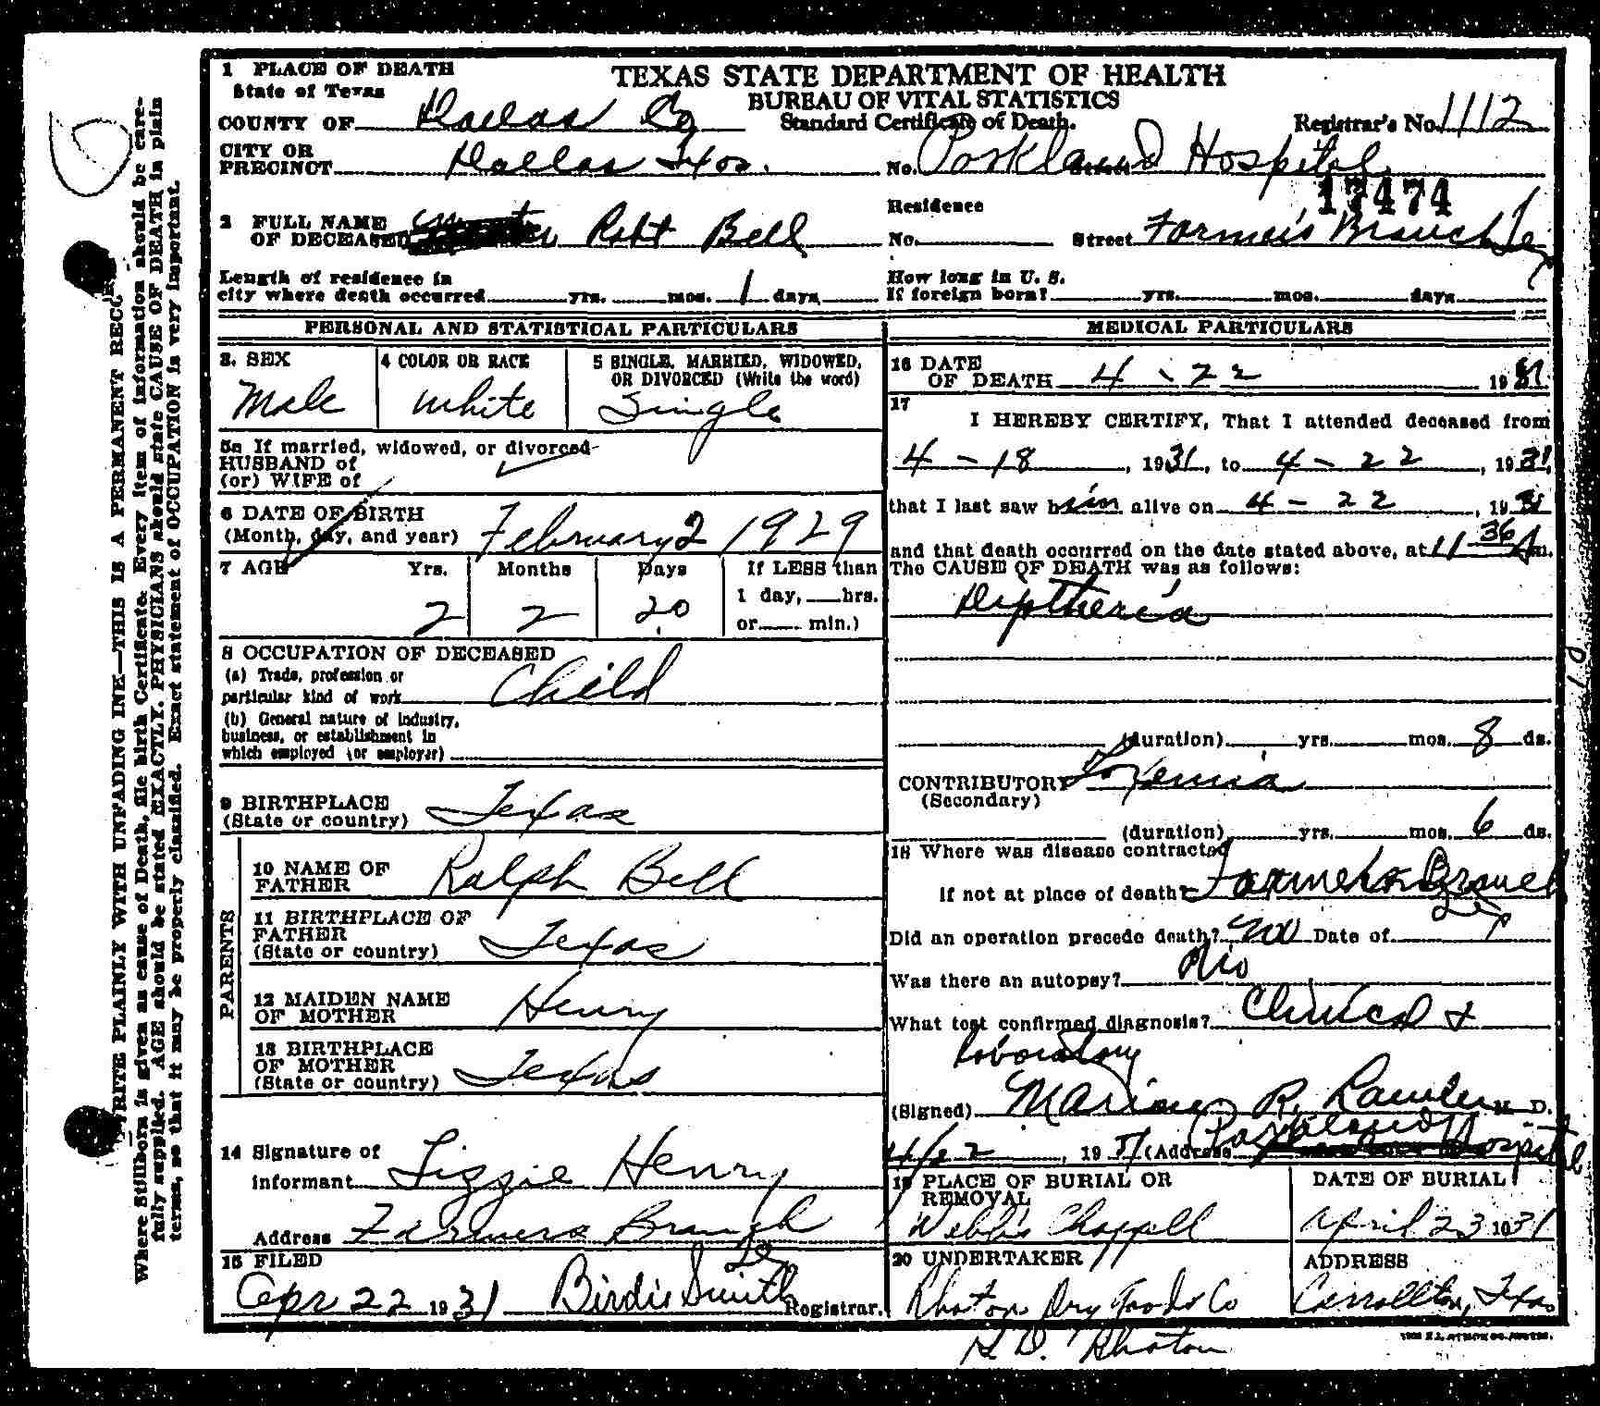 TEXAS STATE DEPARTMENT OF HEALTH
BUREAU OF VITAL STATISTICS
Standard Certificate of Death.
1 PLACE OF DEATH
State of Texas
COUNTY OF Dallas Co
Registrar's No. 1112
CITY OR PRECINCT Dallas Texas.
No. Parkland Hospital Street
17474
2 FULL NAME OF DECEASED Robt Bell
Residence No. Street Farmers Branch Tex
Length of residence in city where death occurred yrs. mos. 1 days
How long in U. S. If foreign born? yrs. mos. days
PERSONAL AND STATISTICAL PARTICULARS
3. SEX Male
4 COLOR OR RACE White
5 SINGLE, MARRIED, WIDOWED, OR DIVORCED (Write the word) Single
5a If married, widowed, or divorced
HUSBAND of
(or) WIFE of
6 DATE OF BIRTH
(Month, day, and year) February 2 1929
7 AGE Yrs. 2 Months 2 Days 20
If LESS than 1 day, hrs. or min.)
8 OCCUPATION OF DECEASED
(a) Trade, profession or particular kind of work Child
(b) General nature of industry, business, or establishment in which employed (or employer)
9 BIRTHPLACE (State or country) Texas
PARENTS
10 NAME OF FATHER Ralph Bell
11 BIRTHPLACE OF FATHER (State or country) Texas
12 MAIDEN NAME OF MOTHER Henry
13 BIRTHPLACE OF MOTHER (State or country) Texas
14 Signature of informant Lizzie Henry
Address Farmers Branch Tex
15 FILED Apr 22 1931 Birdie Smith Registrar.
MEDICAL PARTICULARS
16 DATE OF DEATH 4-22 1931
17 I HEREBY CERTIFY, That I attended deceased from
4-18, 1931, to 4-22, 1931,
that I last saw him alive on 4-22, 1931
and that death occurred on the date stated above, at 11 36 A m.
The CAUSE OF DEATH was as follows:
Diptheria
(duration) yrs. mos. 8 ds.
CONTRIBUTORY (Secondary) Toxemia
(duration) yrs. mos. 6 ds.
18 Where was disease contracted
If not at place of death? Farmers Branch Tex
Did an operation precede death? no Date of
Was there an autopsy? No
What test confirmed diagnosis? Clinical &
Laboratory
(Signed) R. M. D.
1931 (Address Parkland Hospital
19 PLACE OF BURIAL OR REMOVAL Webb's Chappell
DATE OF BURIAL April 23 1931
20 UNDERTAKER Rhoton Dry Goods Co
H D. Rhoton
ADDRESS Carrollton, Texas
WRITE PLAINLY WITH UNFADING INK—THIS IS A PERMANENT RECORD
Where Stillborn is given as cause of Death, file birth Certificate. Every item of information should be care-
fully supplied. AGE should be stated EXACTLY. PHYSICIANS should state CAUSE OF DEATH in plain
terms, so that it may be properly classified. Exact statement of OCCUPATION is very important.